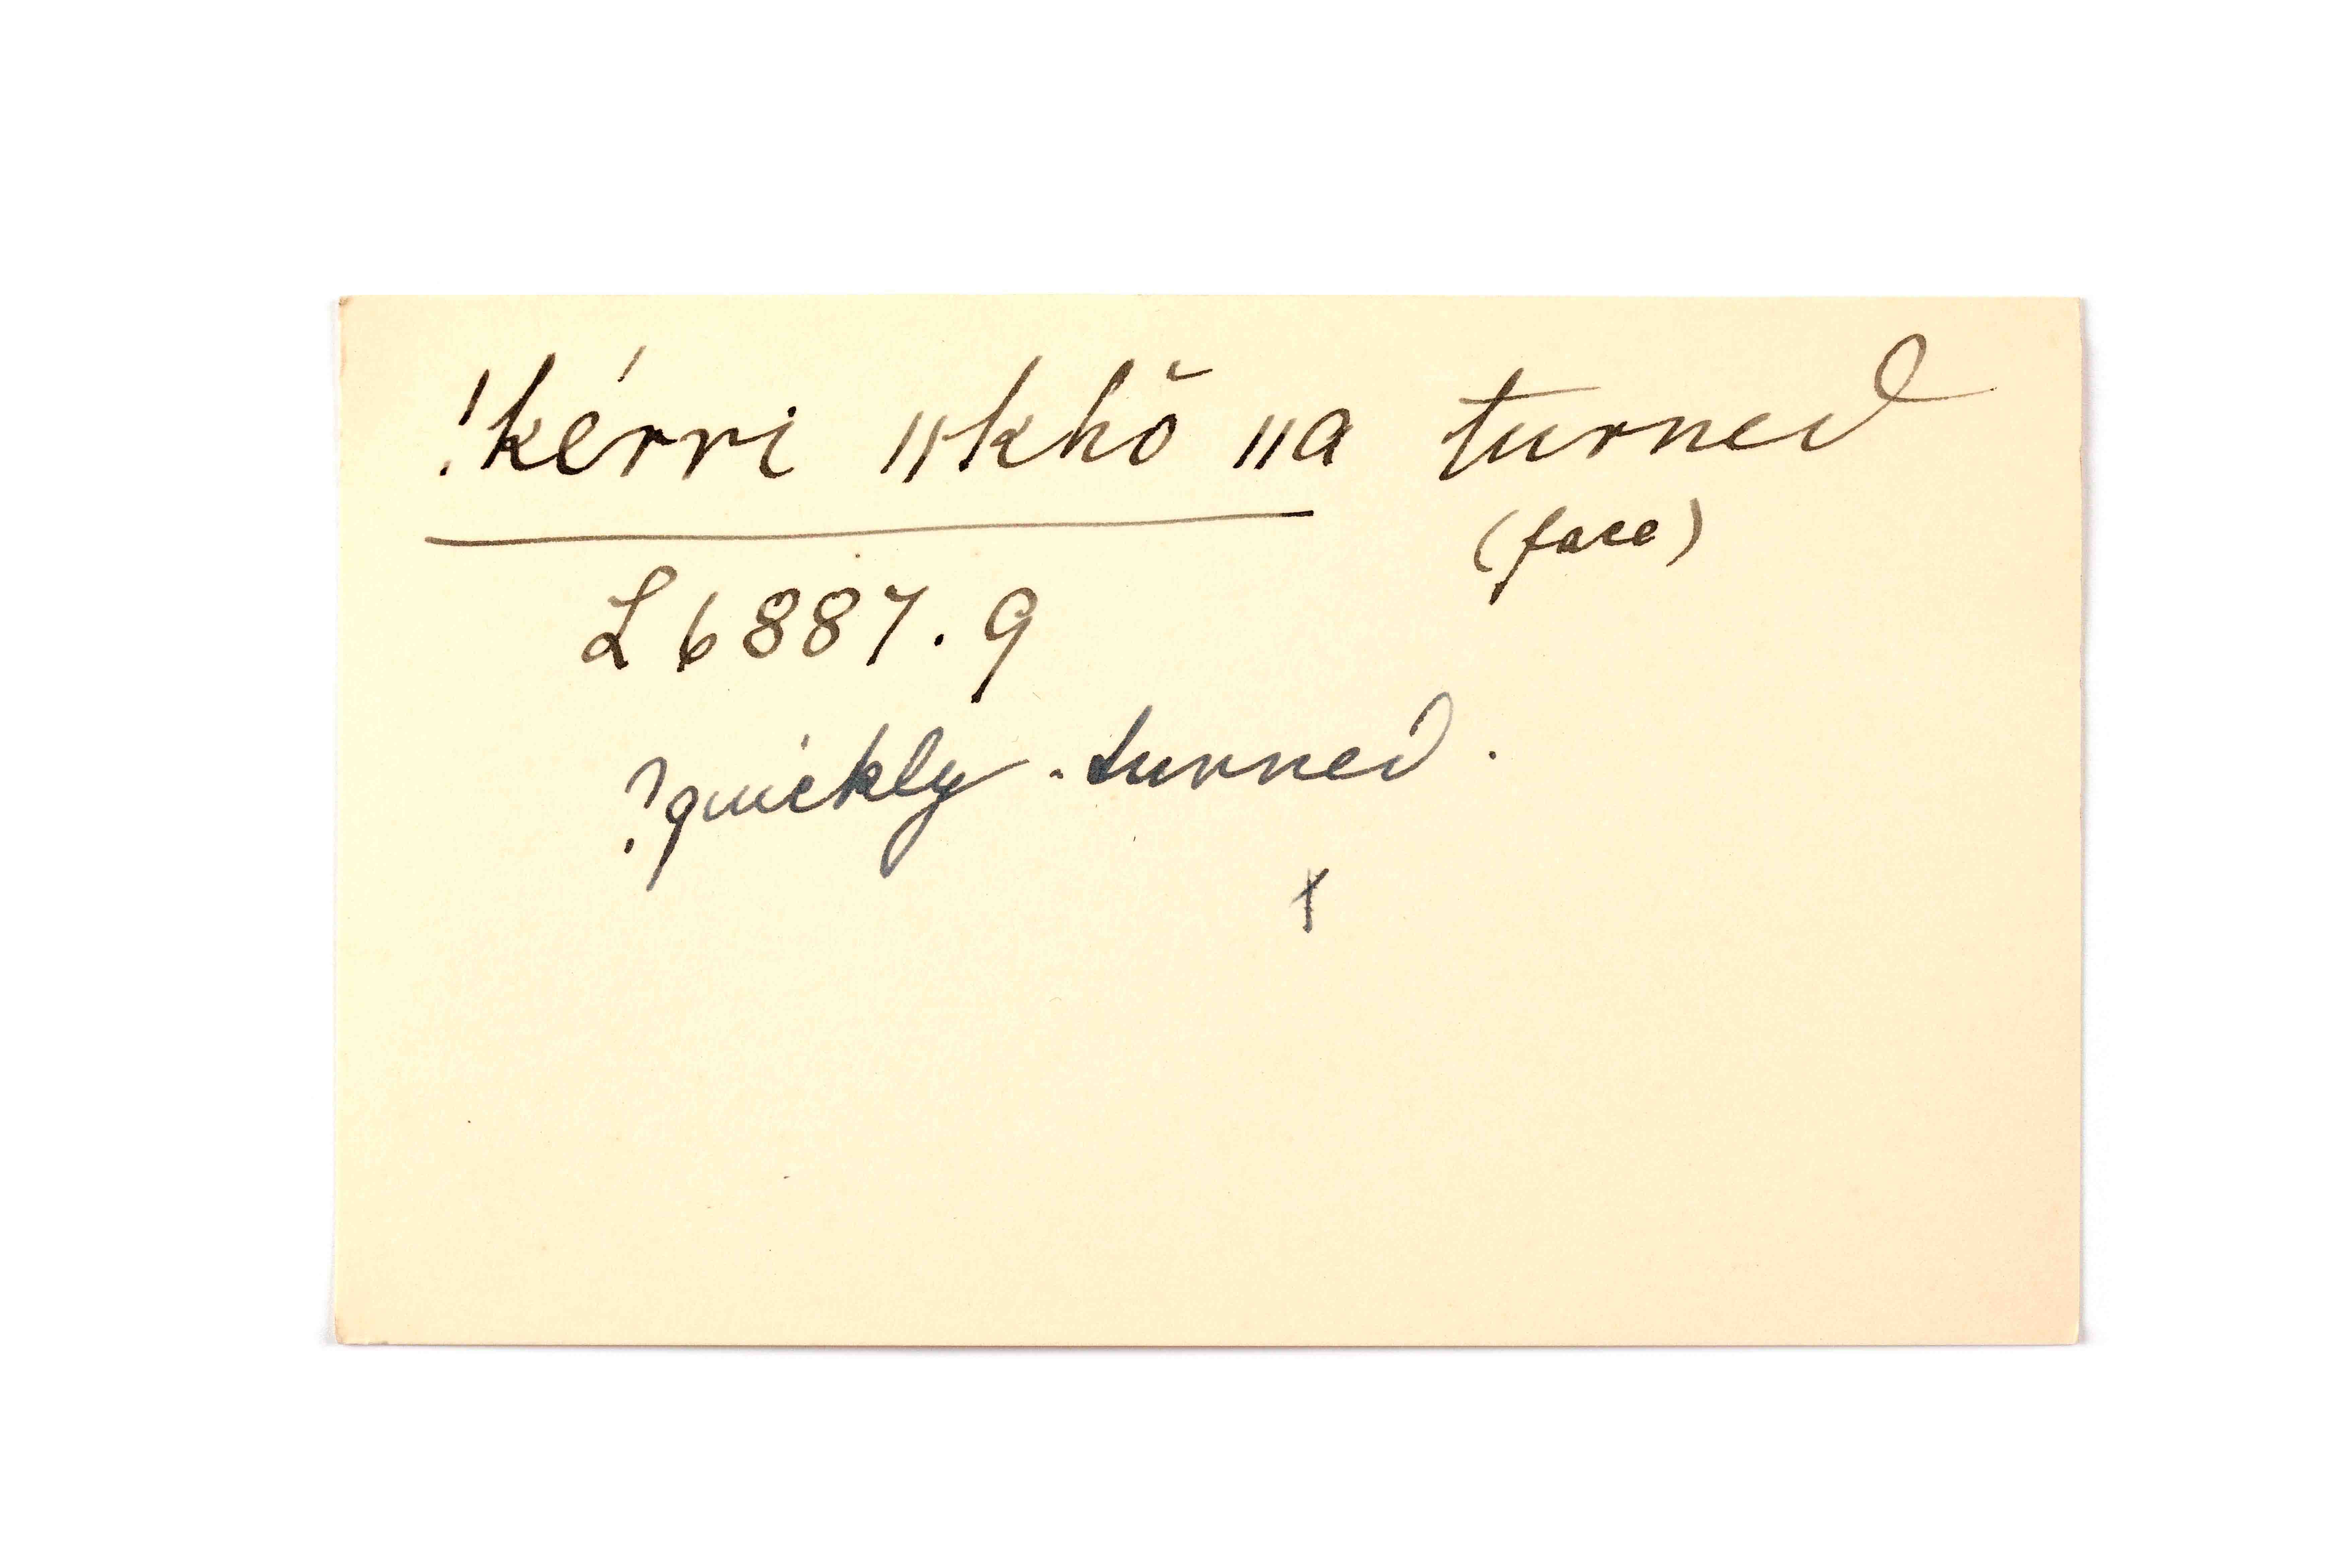 !kérri ǁkhŏ ǁa turned
(face)
L 6887. 9
? quickly - turned.
x